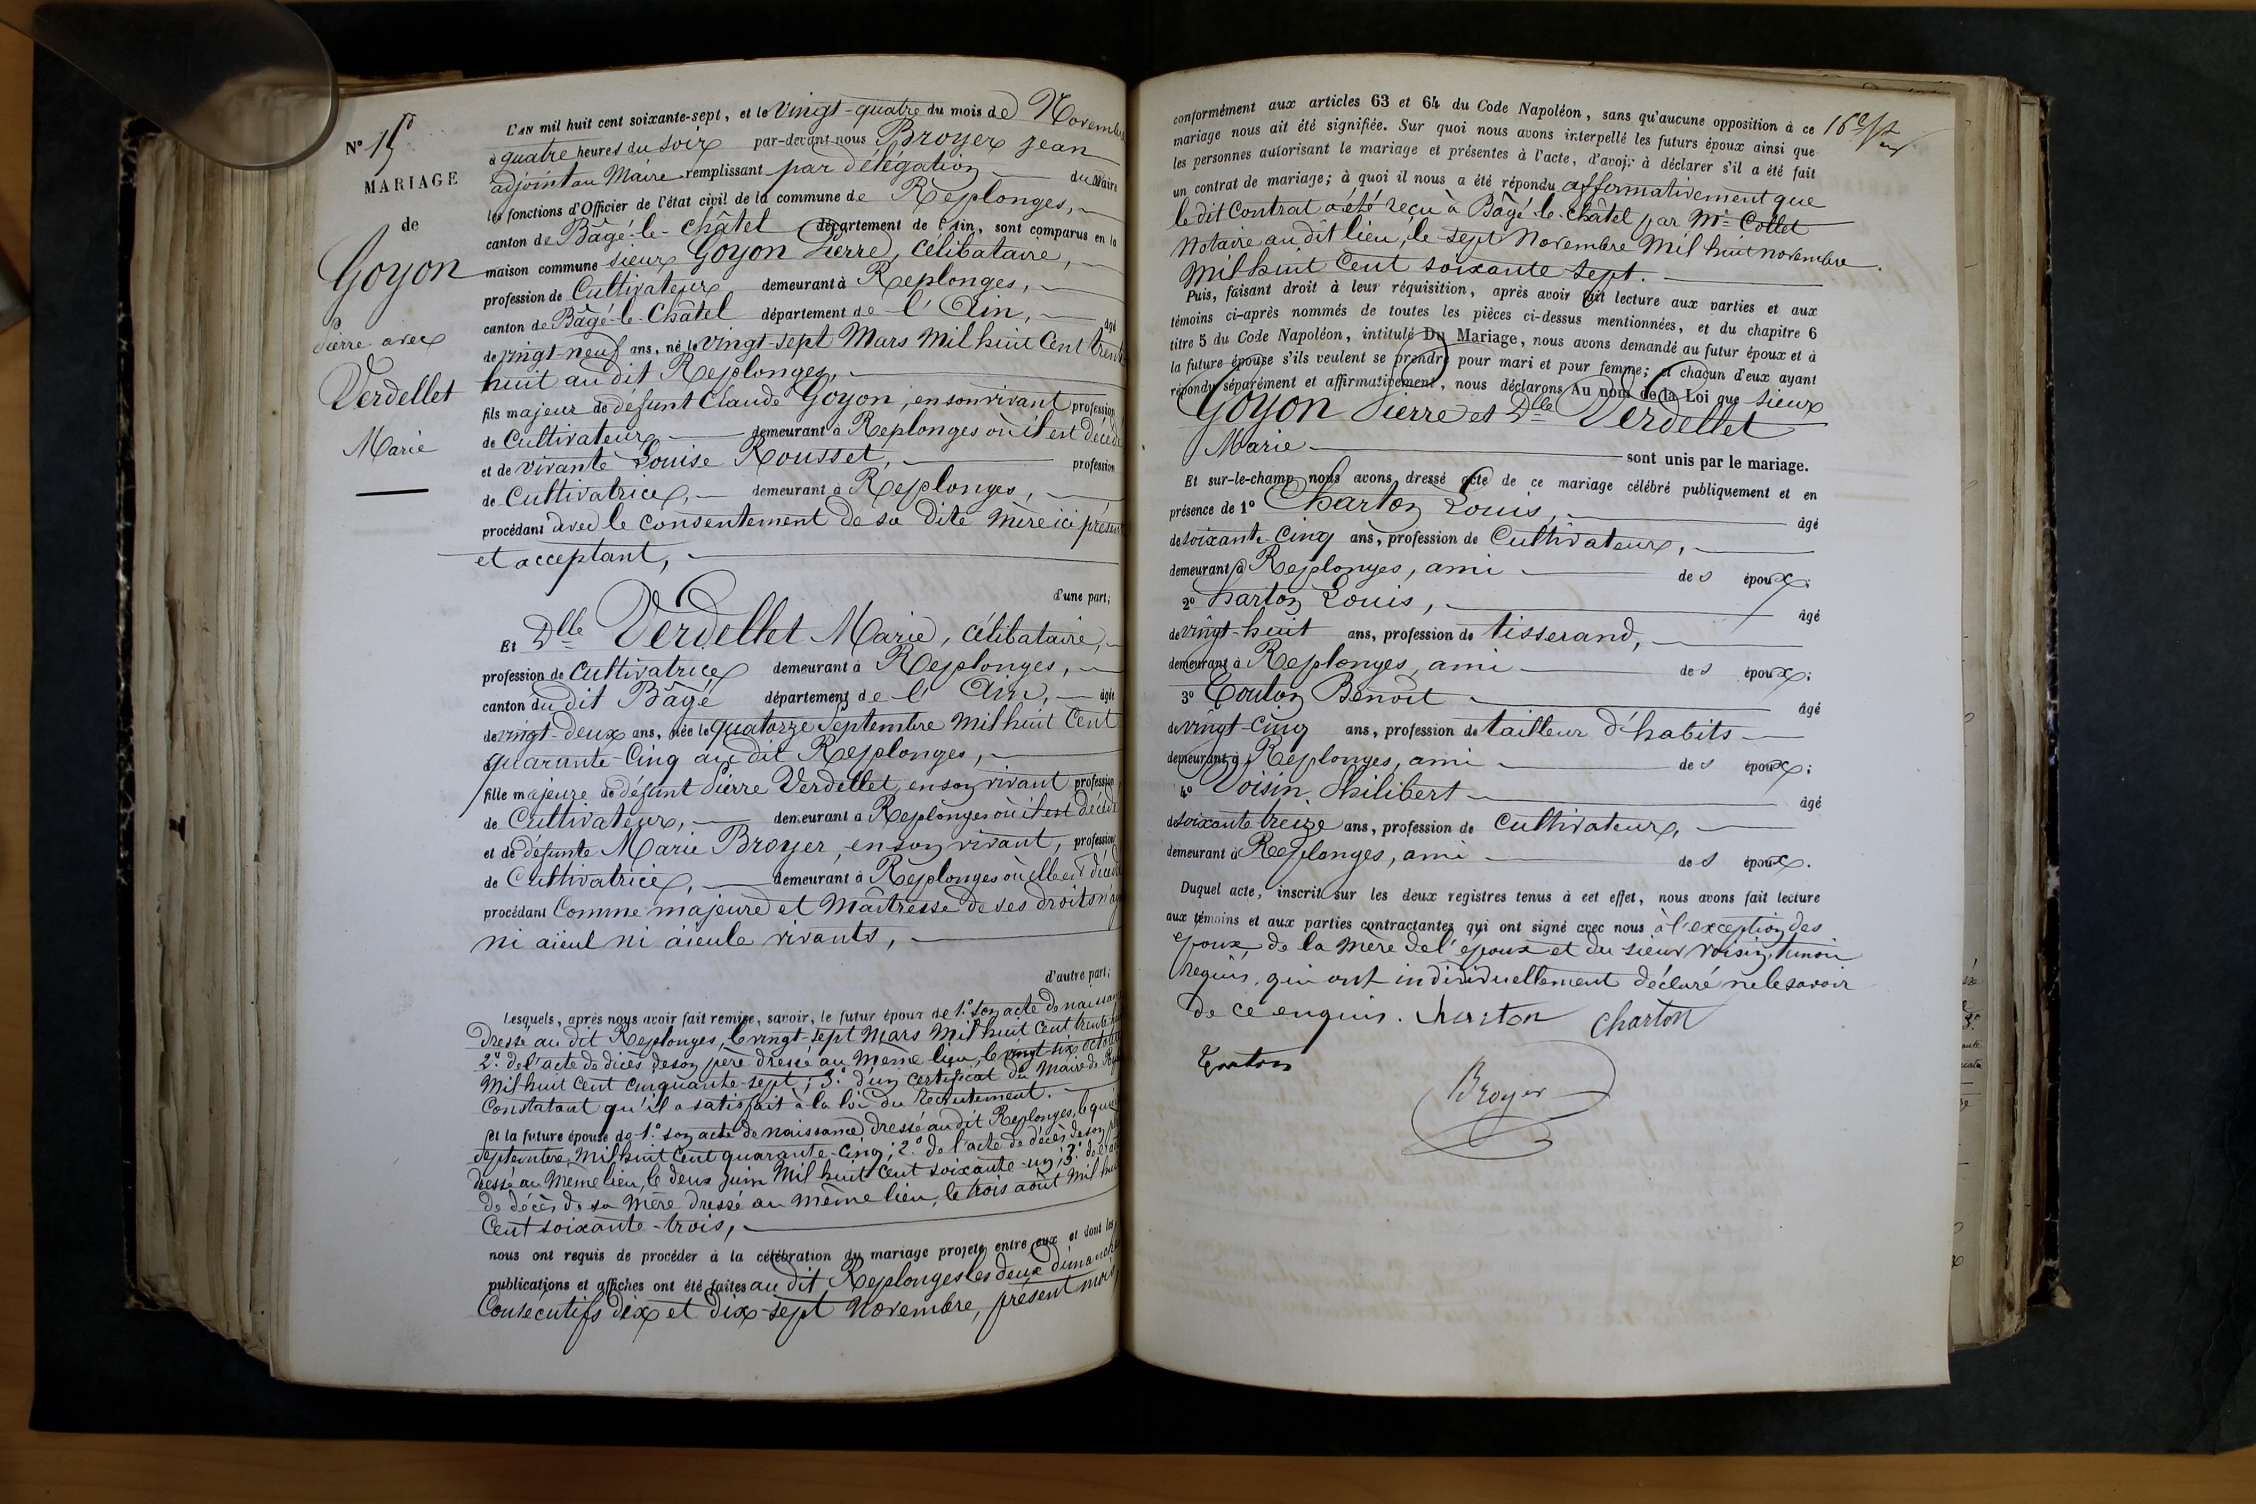 N° 15
MARIAGE
de
Goyon
Pierre avec
Verdellet
Marie
L'AN mil huit cent soixante-sept, et le vingt-quatre du mois de Novembre
à quatre heures du soir par-devant nous Broyer Jean
adjoint au Maire remplissant par délégation du Maire
les fonctions d'Officier de l'état civil de la commune de Replonges,
canton de Bâgé-le-Châtel département de l'Ain, sont comparus en la
maison commune sieur Goyon Pierre, célibataire,
profession de Cultivateur demeurant à Replonges,
canton de Bâgé-le-Châtel département de l'Ain, âgé
de vingt-neuf ans, né le vingt-sept Mars Mil huit Cent trente
huit au dit Replonges,
fils majeur de défunt Claude Goyon, en son vivant profession
de Cultivateur demeurant à Replonges où il est décédé
et de vivante Louise Rousset, profession
de Cultivatrice, demeurant à Replonges,
procédant avec le consentement de sa dite mère ici présente
et acceptant,
d'une part;
Et Dlle Verdellet Marie, célibataire,
profession de Cultivatrice demeurant à Replonges,
canton du dit Bâgé département de l'Ain, âgée
de vingt-deux ans, née le quatorze Septembre Mil huit Cent
quarante-Cinq au dit Replonges,
fille majeure de défunt Pierre Verdellet en son vivant profession
de Cultivateur, demeurant à Replonges où il est décédé
et de défunte Marie Broyer, en son vivant, profession
de Cultivatrice, demeurant à Replonges où elle est décédée
procédant Comme majeure et Maîtresse de ses droits n'ay
ni aïeul ni aïeule vivants,
d'autre part;
Lesquels, après nous avoir fait remise, savoir, le futur époux de 1.° son acte de naissance
dressé au dit Replonges, le vingt-sept Mars Mil huit Cent trente-huit
2.° de l'acte de décès de son père dressé au même lieu, le vingt-six octobre
Mil huit Cent Cinquante-sept; 3.° d'un certificat du Maire de
Constatant qu'il a satisfait à la loi du recrutement.
Et la future épouse de 1.° son acte de naissance, dressé au dit Replonges, le
Septembre, Mil huit Cent quarante-Cinq; 2.° de l'acte de décès de son père
dressé au Même lieu, le deux Juin Mil huit Cent soixante-un; 3.° de l'acte
de décès de sa Mère dressé au même lieu, le trois août Mil huit
Cent soixante-trois,
nous ont requis de procéder à la célébration du mariage projeté entre eux et dont les
publications et affiches ont été faites au dit Replonges les deux dimanches
Consécutifs dix et dix-sept Novembre, présent mois
16e
conformément aux articles 63 et 64 du Code Napoléon, sans qu'aucune opposition à ce
mariage nous ait été signifiée. Sur quoi nous avons interpellé les futurs époux ainsi que
les personnes autorisant le mariage et présentes à l'acte, d'avoir à déclarer s'il a été fait
un contrat de mariage; à quoi il nous a été répondu affirmativement que
le dit Contrat a été reçu à Bâgé-le-Châtel par Me Collet
Notaire au dit lieu, le sept Novembre Mil huit novembre
Mil huit Cent soixante sept.
Puis, faisant droit à leur réquisition, après avoir fait lecture aux parties et aux
témoins ci-après nommés de toutes les pièces ci-dessus mentionnées, et du chapitre 6
titre 5 du Code Napoléon, intitulé Du Mariage, nous avons demandé au futur époux et à
la future épouse s'ils veulent se prendre pour mari et pour femme; et chacun d'eux ayant
répondu séparément et affirmativement, nous déclarons Au nom de la Loi que sieur
Goyon Pierre et Dlle Verdellet
Marie sont unis par le mariage.
Et sur-le-champ nous avons dressé acte de ce mariage célébré publiquement et en
présence de 1° Charton Louis, âgé
de soixante-Cinq ans, profession de Cultivateur,
demeurant à Replonges, ami des époux;
2° Charton Louis, âgé
de vingt-huit ans, profession de tisserand,
demeurant à Replonges, ami des époux;
3° Couton Benoît âgé
de vingt-Cinq ans, profession de tailleur d'habits
demeurant à Replonges, ami des époux;
4° Voisin Philibert âgé
de soixante treize ans, profession de Cultivateur,
demeurant à Replonges, ami des époux.
Duquel acte, inscrit sur les deux registres tenus à cet effet, nous avons fait lecture
aux témoins et aux parties contractantes qui ont signé avec nous à l'exception des
époux, de la mère de l'époux et du sieur Voisin, témoin
requis, qui ont individuellement déclaré ne le savoir
de ce enquis. Charton Charton
Broyer